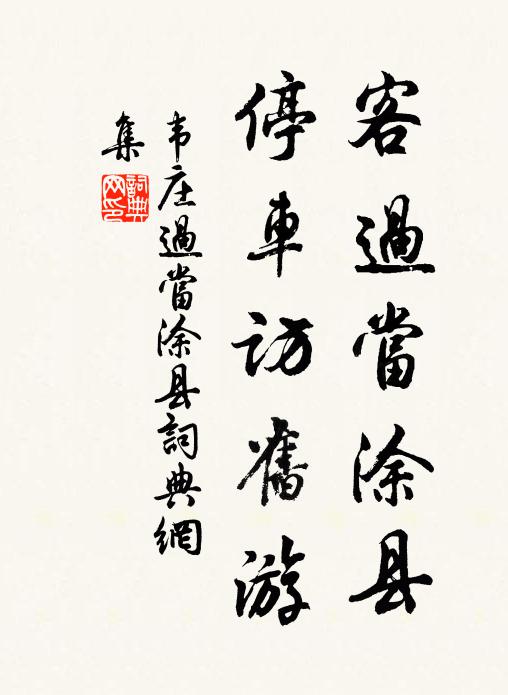 客過當涂县
停車訪舊游
韦庄過當涂县詞典網
集
詞典網印